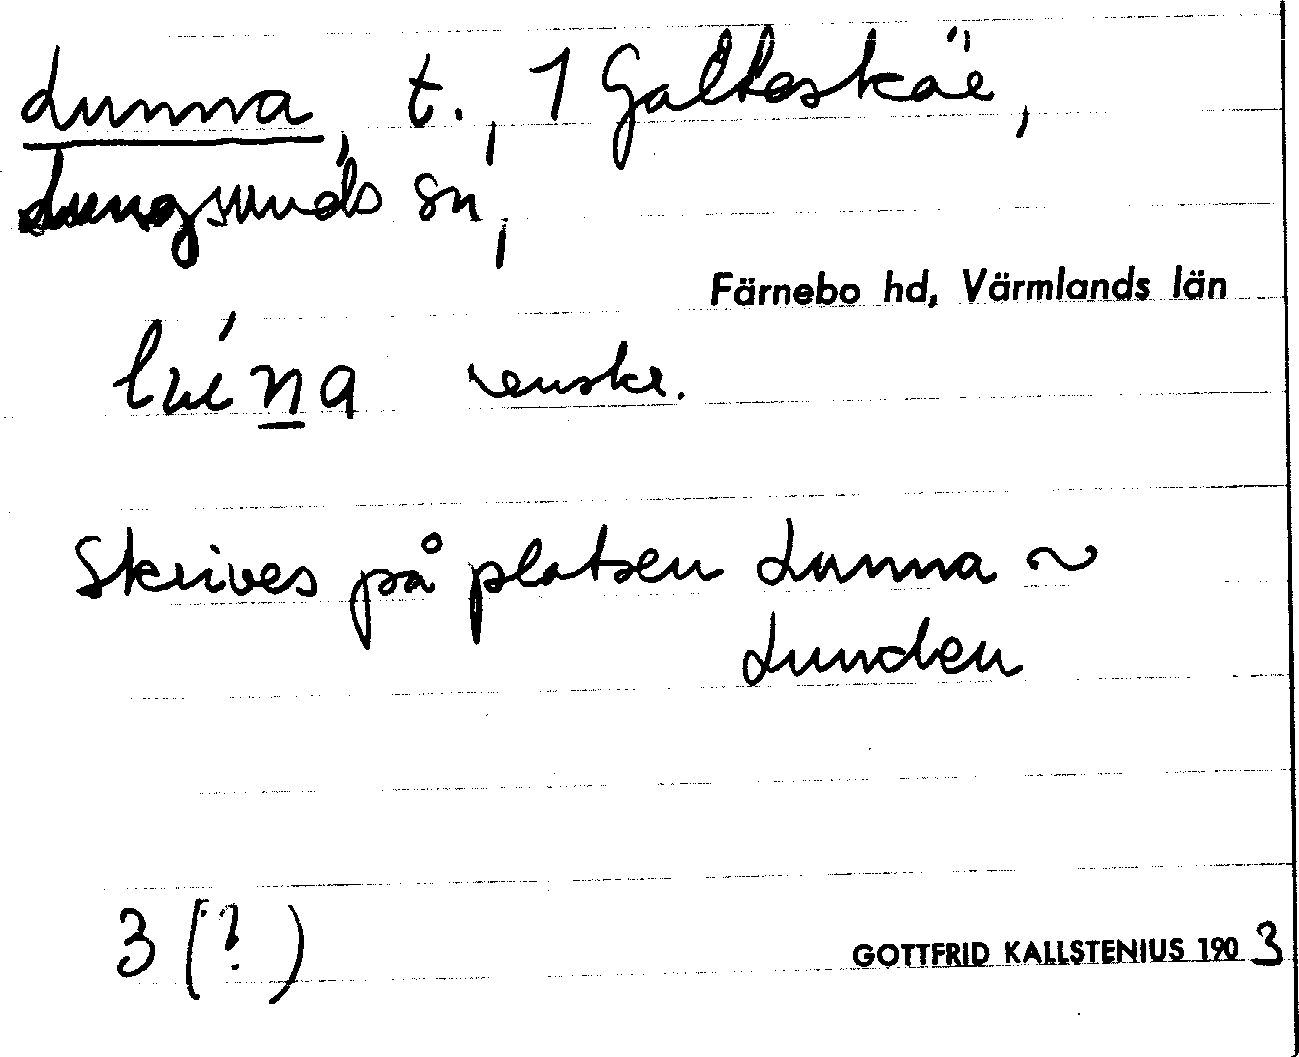 Lunna, t., 1 Galtoskär,
Lungsunds sn,
Färnebo hd, Värmlands län
lúna enskr.
Skrives på platsen Lunna ~
Lunden
3 (?)
GOTTFRID KALLSTENIUS 1903